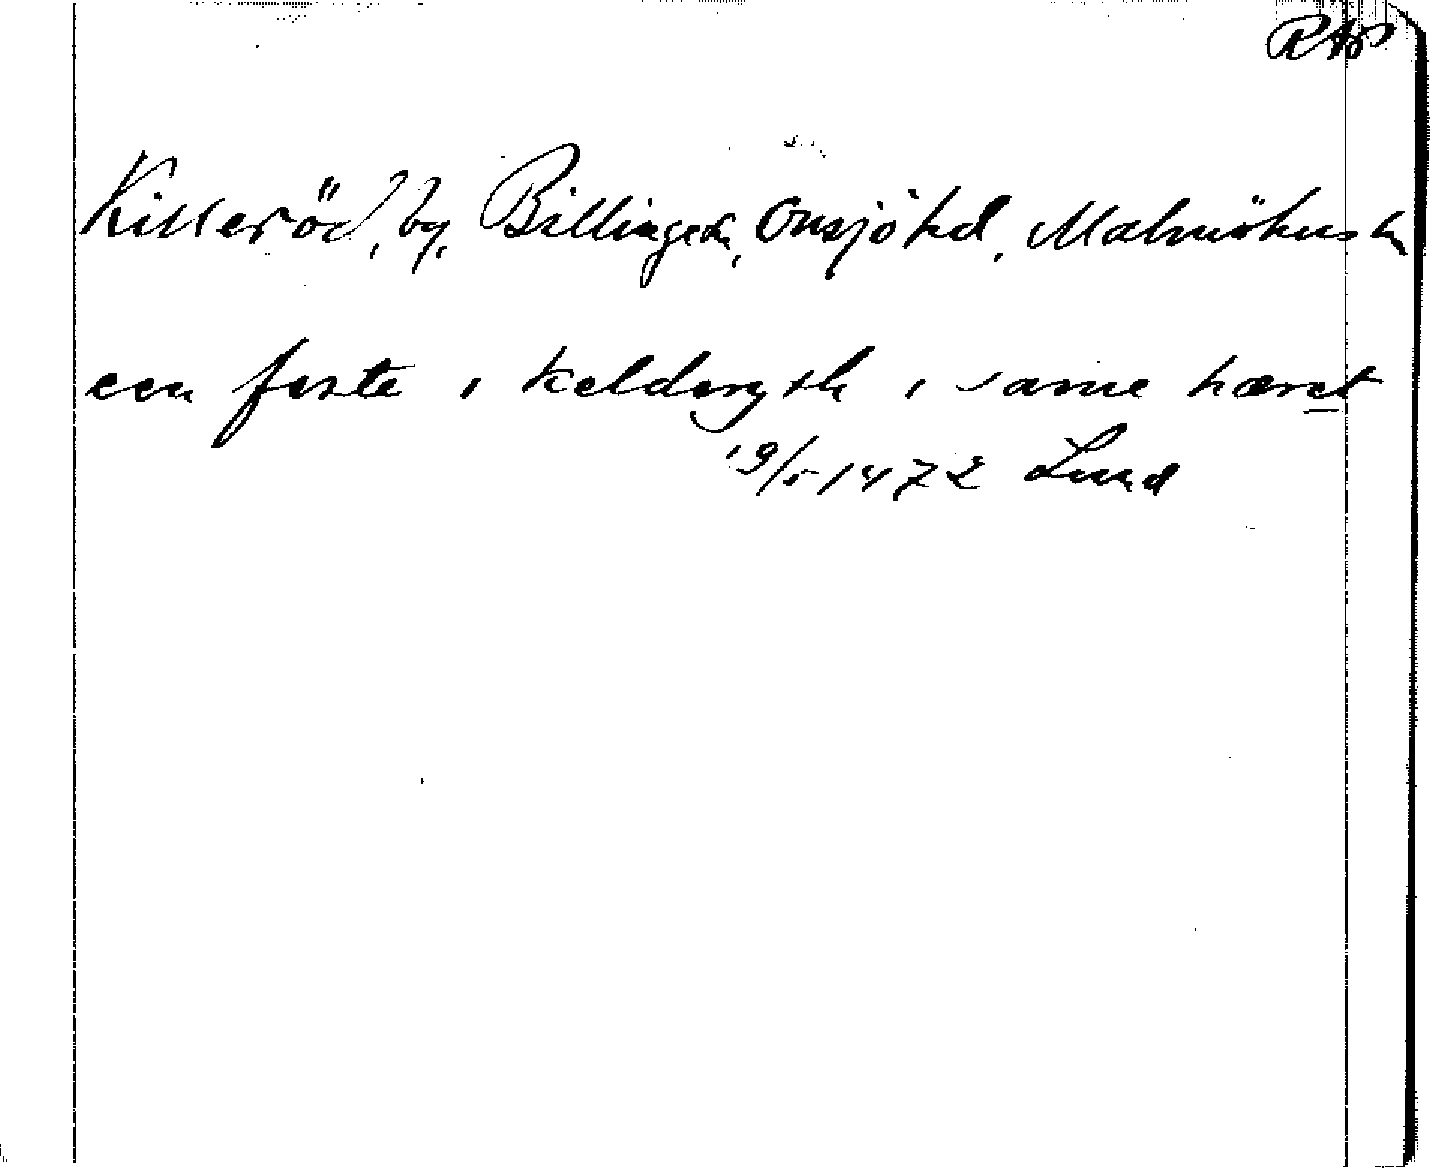 RAP
Killeröd, by, Billinge sn, Onsjö hd, Malmöhus ln
een feste i keldsrydh i same hæret
19/5 1472 Lund